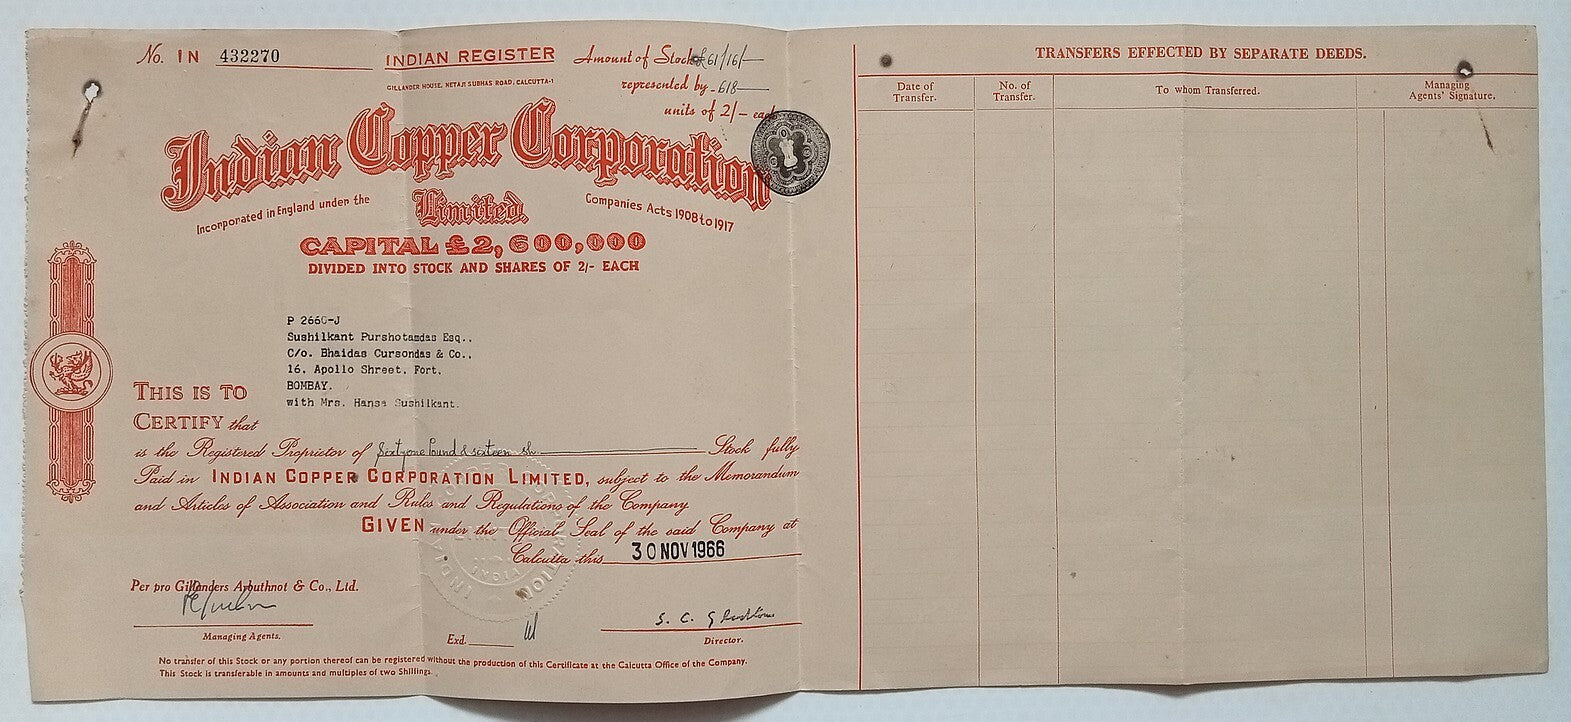 No. IN 432270
INDIAN REGISTER
GILLANDER HOUSE, NETAJI SUBHAS ROAD, CALCUTTA-1
Amount of Stock £61/16/-
represented by 618
units of 2/- each
Indian Copper Corporation
Limited.
Incorporated in England under the Companies Acts 1908 to 1917
CAPITAL £2,600,000
DIVIDED INTO STOCK AND SHARES OF 2/- EACH
P 2660-J
Sushilkant Purshotamdas Esq.,
C/o. Bhaidas Cursondas & Co.,
16, Apollo Shreet, Fort,
BOMBAY.
with Mrs. Hansa Sushilkant.
THIS IS TO
CERTIFY that
is the Registered Proprietor of Sixtyone Pound & sixteen sh Stock fully
Paid in INDIAN COPPER CORPORATION LIMITED, subject to the Memorandum
and Articles of Association and Rules and Regulations of the Company.
GIVEN under the Official Seal of the said Company at
Calcutta this 30 NOV 1966
Per pro Gillanders Arbuthnot & Co., Ltd.
Managing Agents.
Exd.
S. C.
Director.
No transfer of this Stock or any portion thereof can be registered without the production of this Certificate at the Calcutta Office of the Company.
This Stock is transferable in amounts and multiples of two Shillings.
TRANSFERS EFFECTED BY SEPARATE DEEDS.
Date of Transfer.
No. of Transfer.
To whom Transferred.
Managing Agents' Signature.